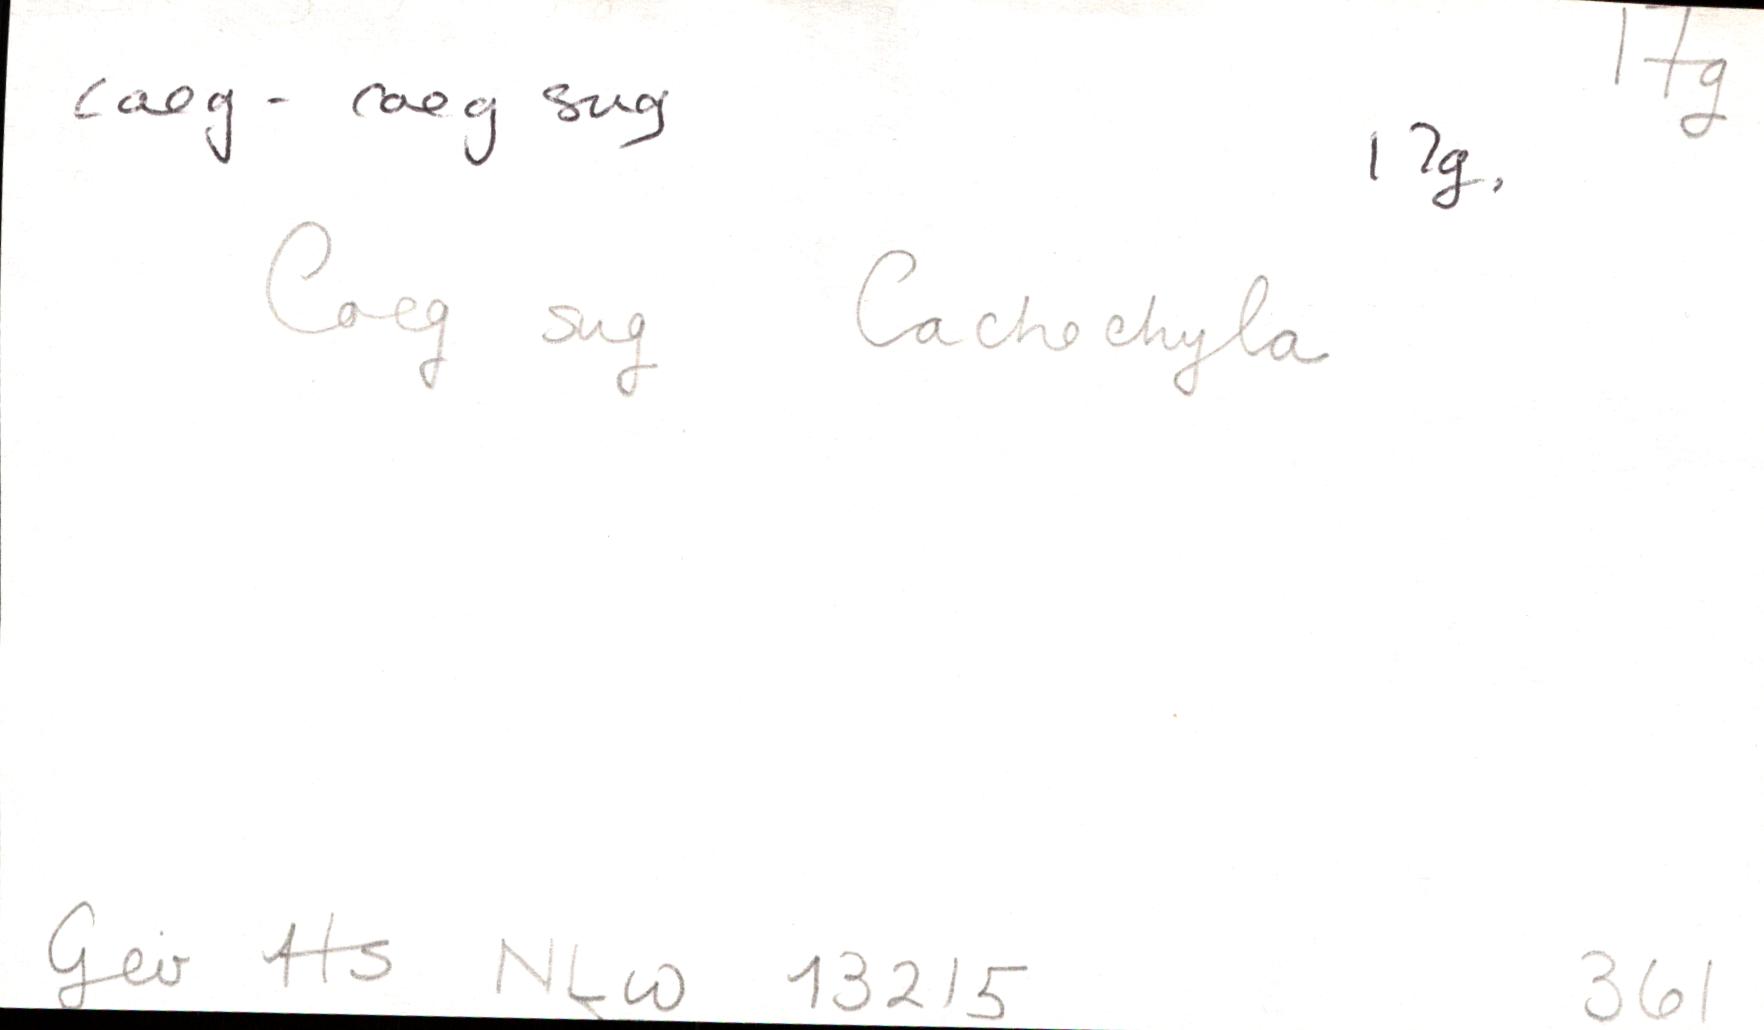 17g
caeg - caeg sug
17g.
Caeg sug Cachochyla
Geir Hs NLW 13215 361